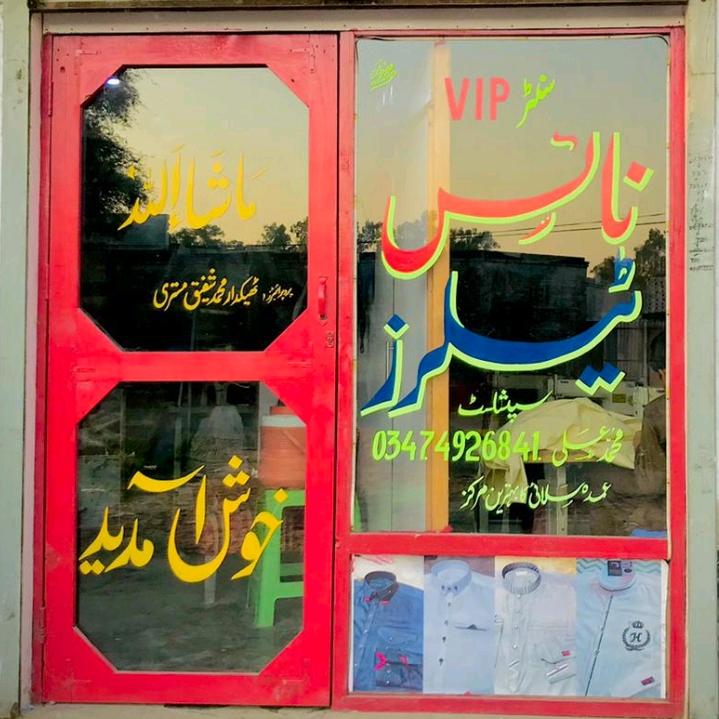 ماشاءاللہ
پروپرائٹر: ٹھیکیدار محمد شفیق مستری
خوش آمدید
VIP سنٹر
نائس
ٹیلرز
سپیشلسٹ
محمد علی 03474926841
عمدہ سلائی کا بہترین مرکز
H